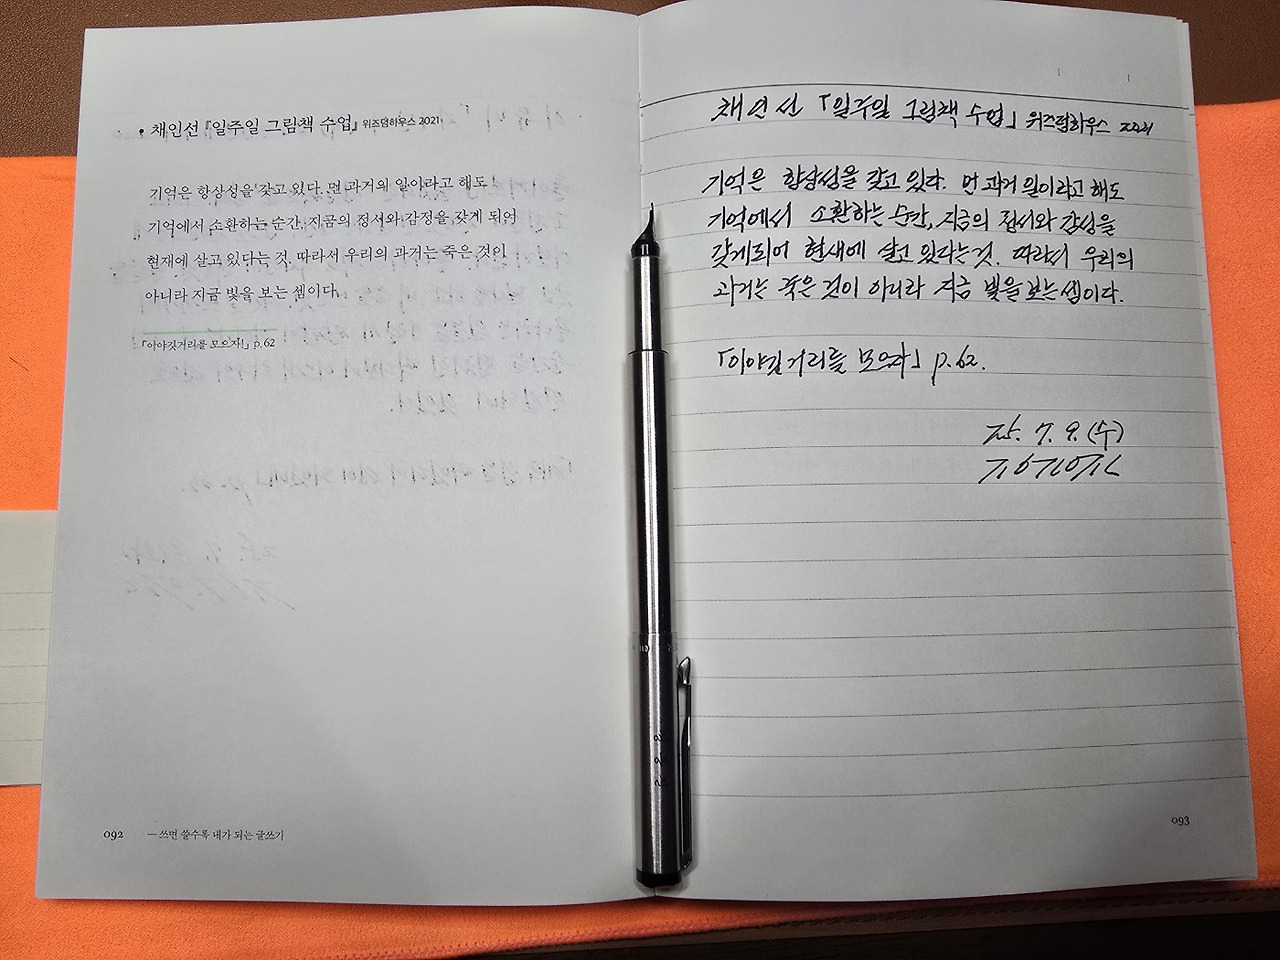 채인선 『일주일 그림책 수업』 위즈덤하우스 2021
기억은 항상성을 갖고 있다. 먼 과거의 일이라고 해도
기억에서 소환하는 순간, 지금의 정서와 감정을 갖게 되어
현재에 살고 있다는 것. 따라서 우리의 과거는 죽은 것이
아니라 지금 빛을 보는 셈이다.
「이야깃거리를 모으자!」 p.62
092 — 쓰면 쓸수록 내가 되는 글쓰기
채인선 「일주일 그림책 수업」 위즈덤하우스 2021
기억은 항상성을 갖고 있다. 먼 과거 일이라고 해도
기억에서 소환하는 순간, 지금의 정서와 감성을
갖게되어 현재에 살고 있다는 것. 따라서 우리의
과거는 죽은 것이 아니라 지금 빛을 보는 셈이다.
「이야깃거리를 모으자」 p.62.
25. 7. 9. (수)
093